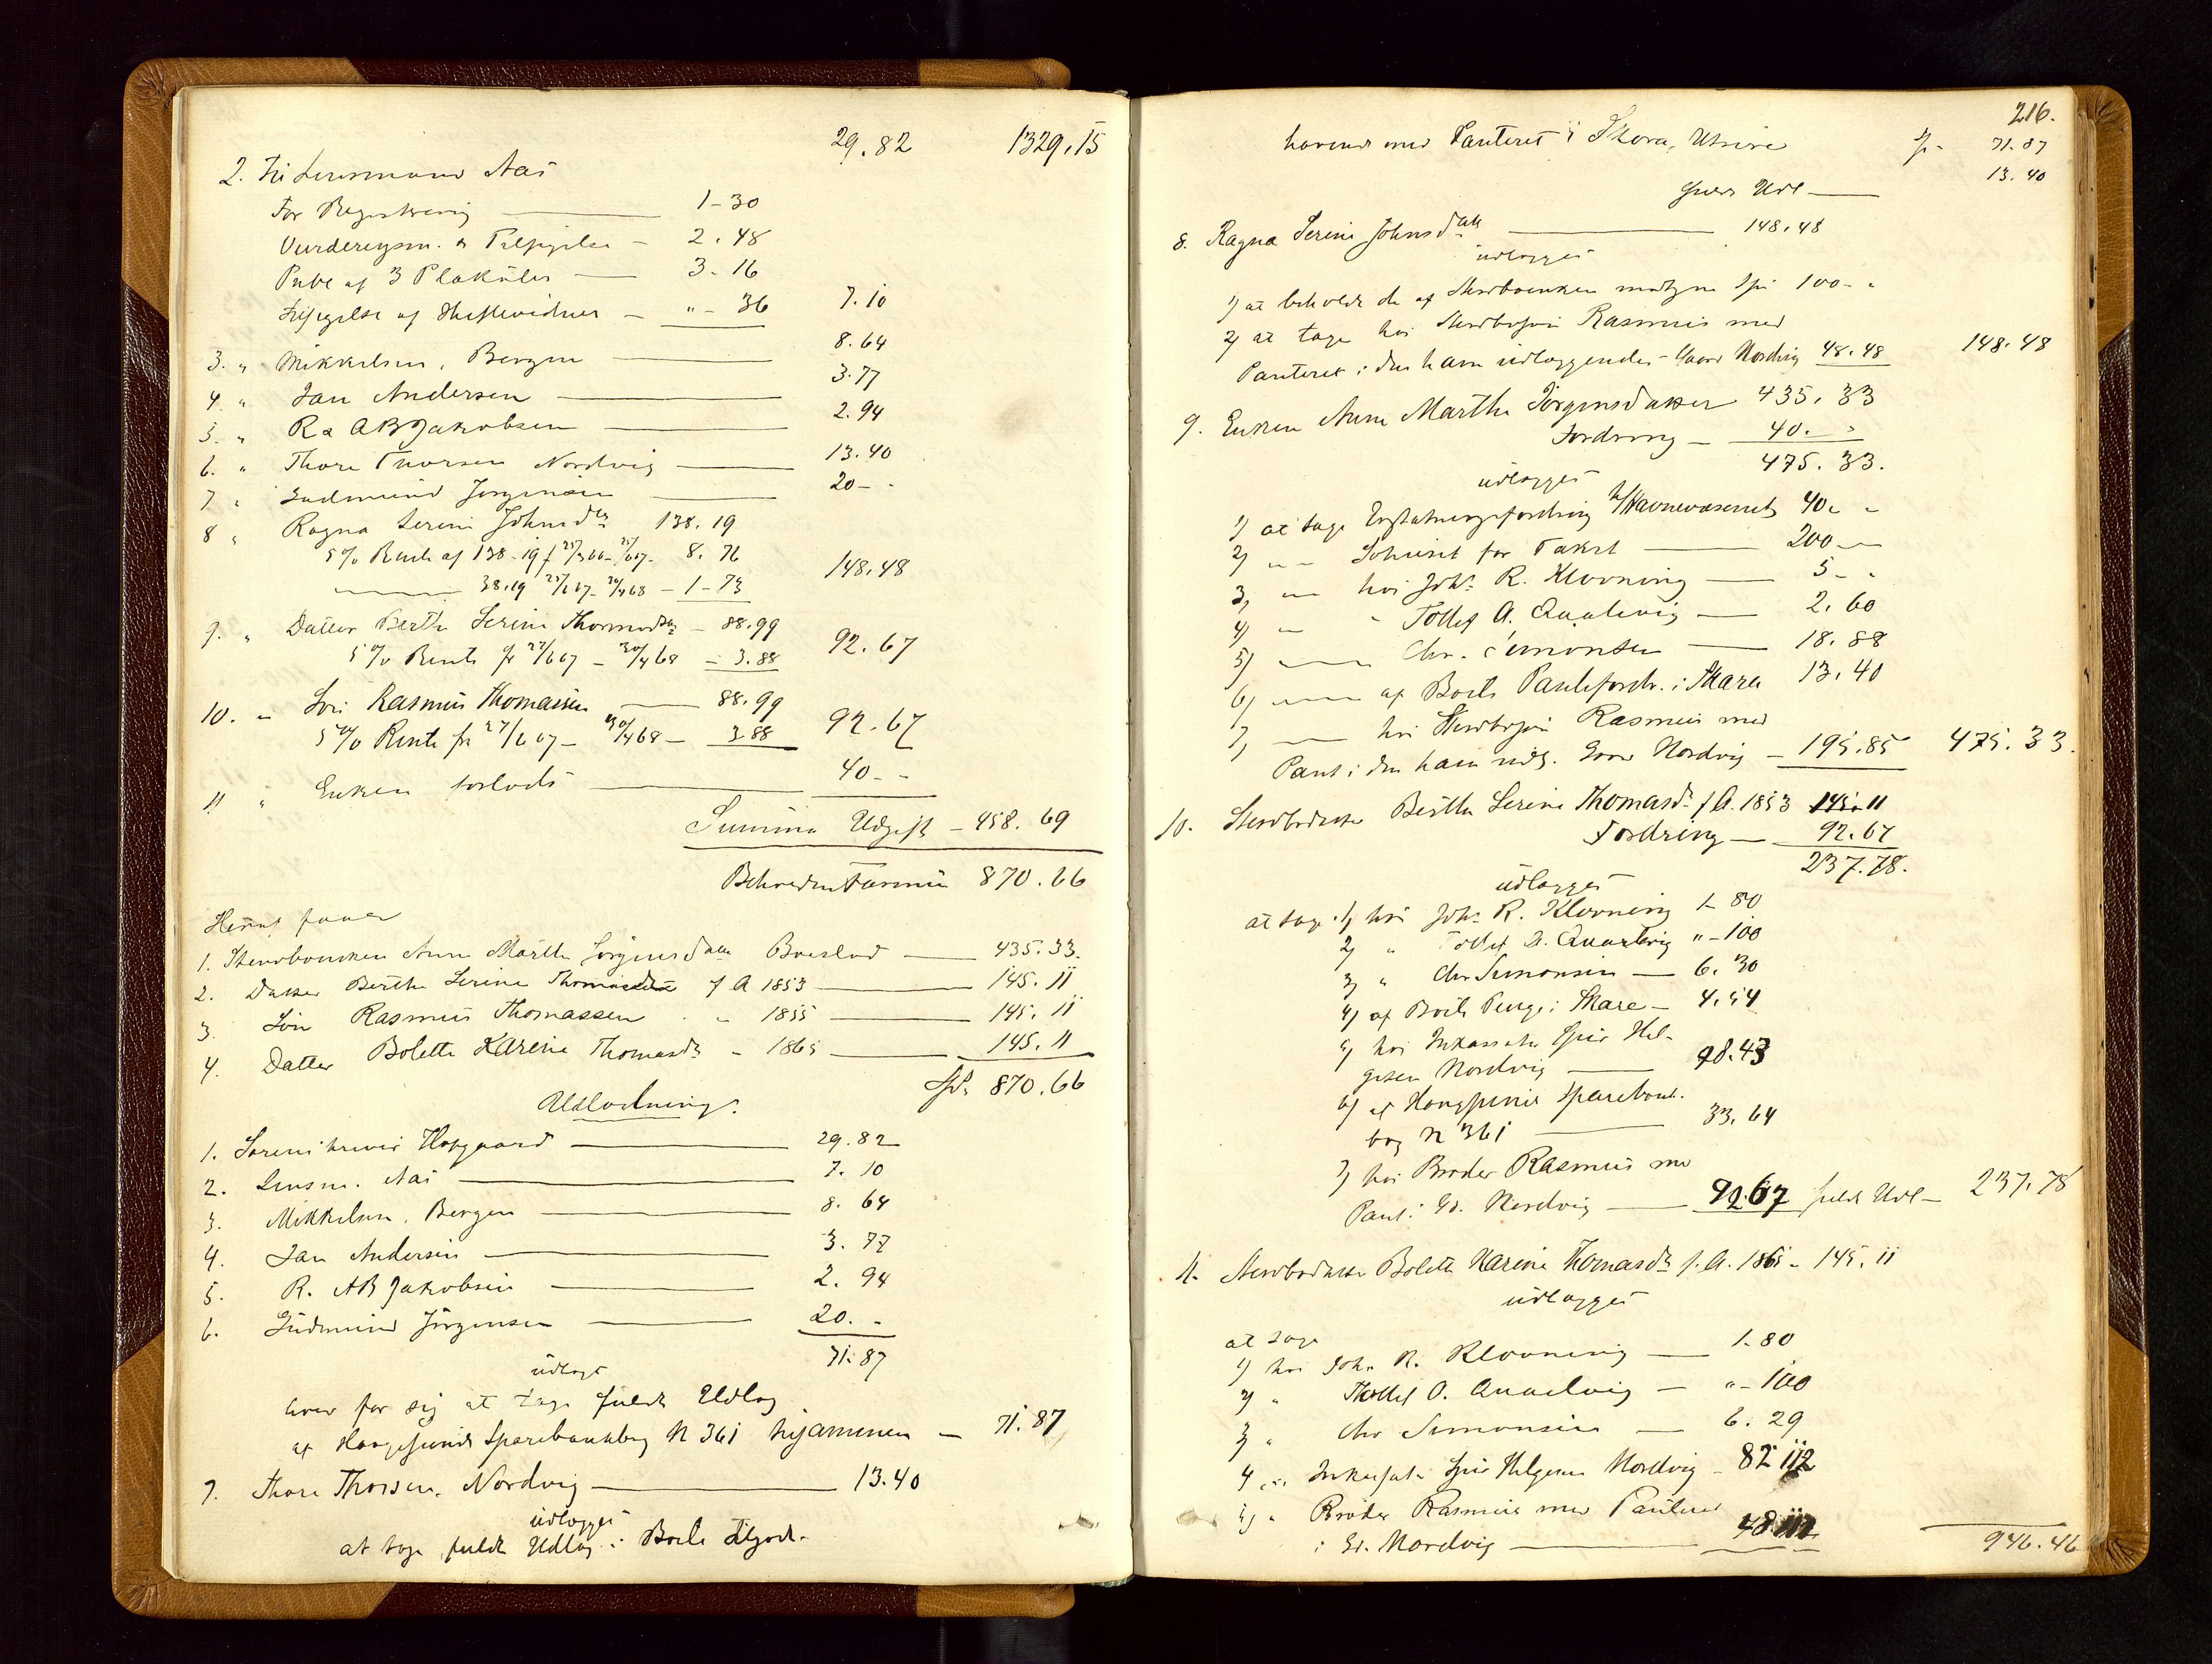 29.82 1329.15
2. Til Lensmand Aas
For Registrering 1-30
Vurderingsm. & Tilsigelse - 2.48
Publ af 3 Plakater 3-16
Tilsigelse af Skiftevidner - "-36 7.10
3. " Mikkelsen, Bergen 8.64
4 " Jan Andersen 3.77
5. " R & AB Jakobsen 2.94
6. " Thore Thorsen Nordvig 13.40
7 " Gudmund Jørgensen 20-"
8 " Ragna Serine Johnsdtr 138.19
5% Rente af 138-19 8.76
38.19 - 1-73 148.48
9. " Datter Berthe Serine Thomasdtr - 88.99
5% Rente fr 27/6 67 - 30/4 68 - 3.88 92.67
10. " Søn Rasmus Thomassen 88.99
5% Rente fr 27/6 67 - 30/4 68 - 3.88 92.67
11 " Enken forlods 40-"
Summa Udgift - 458.69
Beholden Formue 870.66
Heraf faaer
1. Stervboenken Anne Marthe Jørgensdatter Boeslod 435.33.
2. Datter Berthe Serine Thomasdtr f A 1853 145.11
3. Søn Rasmus Thomassen " 1855 145.11
4. Datter Bolette Karine Thomasdtr " 1865 145.11
Spd. 870.66
Udlodning.
1. Sorenskriver Hofgaard 29.82
2. Lensm. Aas 7.10
3. Mikkelsen, Bergen 8.64
4. Jan Andersen 3.77
5. R. AB Jakobsen 2.94
6. Gudmund Jørgensen 20.-
71.87
udlagt
hver for sig at tage fuldt Udlæg
af Haugesunds Sparebankbog N 361 tilsammen - 71.87
7. Thore Thorsen, Nordvig 13.40
udlægges
at tage fuldt Udlæg i Boets Tilgode-
216.
havende med Panteret i Skare, Utsire Sp. 71.87
fuldt Udl 13.40
8. Ragna Serine Johnsdatr 148.48
udlægges
1) at beholde de af Stervboenken modtagne Spd 100-"
2) at tage hos Stervbosøn Rasmus med
Panteret i den ham udlæggendes Gaard Nordvig 48.48 148.48
9. Enken Anne Marthe Jørgensdatter 435.33
Fordring - 40.-
475.33.
udlægges
1) at tage Erstatningsfordring h/Havnevæsenet 40.-
2) " - for Takst 200-
3) " hos Johs R. Klovning 5-"
4) " " Tollef A. Qualevig 2.60
5) Chr. Simonsen 18.88
6) af Boets Pantefordr. i Skare 13.40
7) hos Stervbosøn Rasmus med
Pant i den ham udl. Gaard Nordvig - 195.85 475.33.
10. Stervbodatter Berthe Serine Thomasdr f A. 1853 145.11
Fordring 92.67
237.78.
udlægges
at tage 1) hos Johs R. Klovning 1-80
2) " Tollef A. Qualevig "-100
3) " Chr Simonsen 6.30
4) af Boets Penge i Skare - 4.54
5) hos Inkassator Sjur Hel-
gesen Nordvig 98.43
6) af Haugesunds Sparebank-
bog N 361 33.64
7) hos Broder Rasmus med
Pant i Gd. Nordvig 92.67 fuldt Udl - 237.78
11. Stervbodatter Bolette Karine Thomasdr f. A. 1865 - 145.11
udlægges
at tage
1) hos Johs R. Klovning 1-80
2) " Tollef O. Qualevig - "-100
3) " Chr Simonsen 6.29
4 " Inkassator Sjur Helgesen Nordvig - 82
5) " Broder Rasmus med Panteret
i Gd. Nordvig 48 946.46